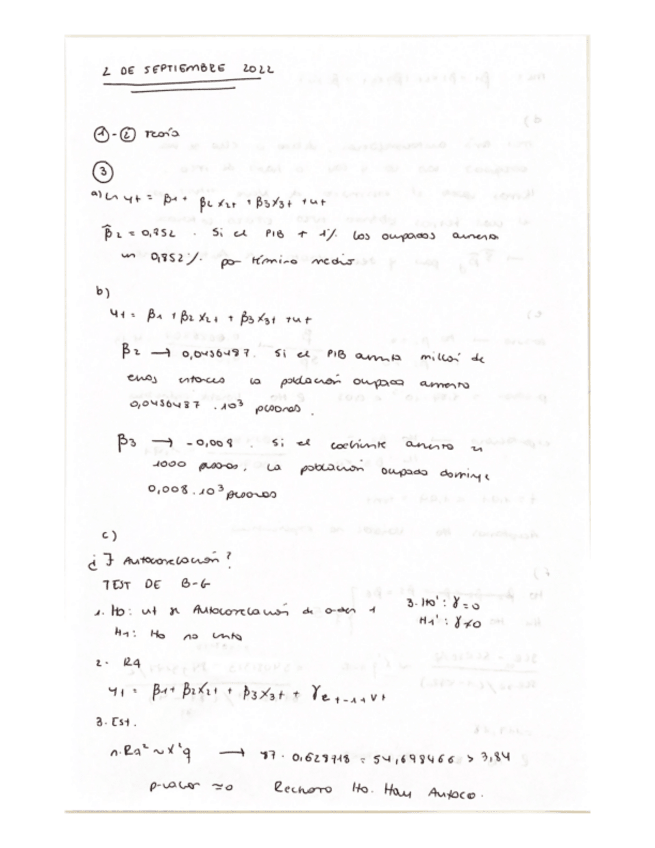 2 DE SEPTIEMBRE 2022
①-② teoría
③
a) Ln yt = β1 + β2 X2t + β3X3t + ut
β̂2 = 0,852 . Si el PIB ↑ 1% los ocupados aumenta
un 0,852% por término medio
b)
yt = β1 + β2 X2t + β3 X3t + ut
β2 → 0,0436487. Si el PIB aumenta millón de
euros entonces la población ocupada aumenta
0,0436487 . 10³ personas .
β3 → -0,008 . Si el cociente aumenta en
1000 personas, la población ocupada disminuye
0,008.10³ personas
c)
¿ ∃ Autocorrelación?
TEST DE B-G
1. H0: ut no Autocorrelación de orden 1
H1: H0 no cierta
3. H0': γ=0
H1': γ≠0
2. RA
yt = β1 + β2X2t + β3X3t + γet-1 + vt
3. Est.
n.Ra² ~ X²q → 87 . 0,628718 = 54,698466 > 3,84
p-valor ≈0 Rechazo H0. Hay Autoco.